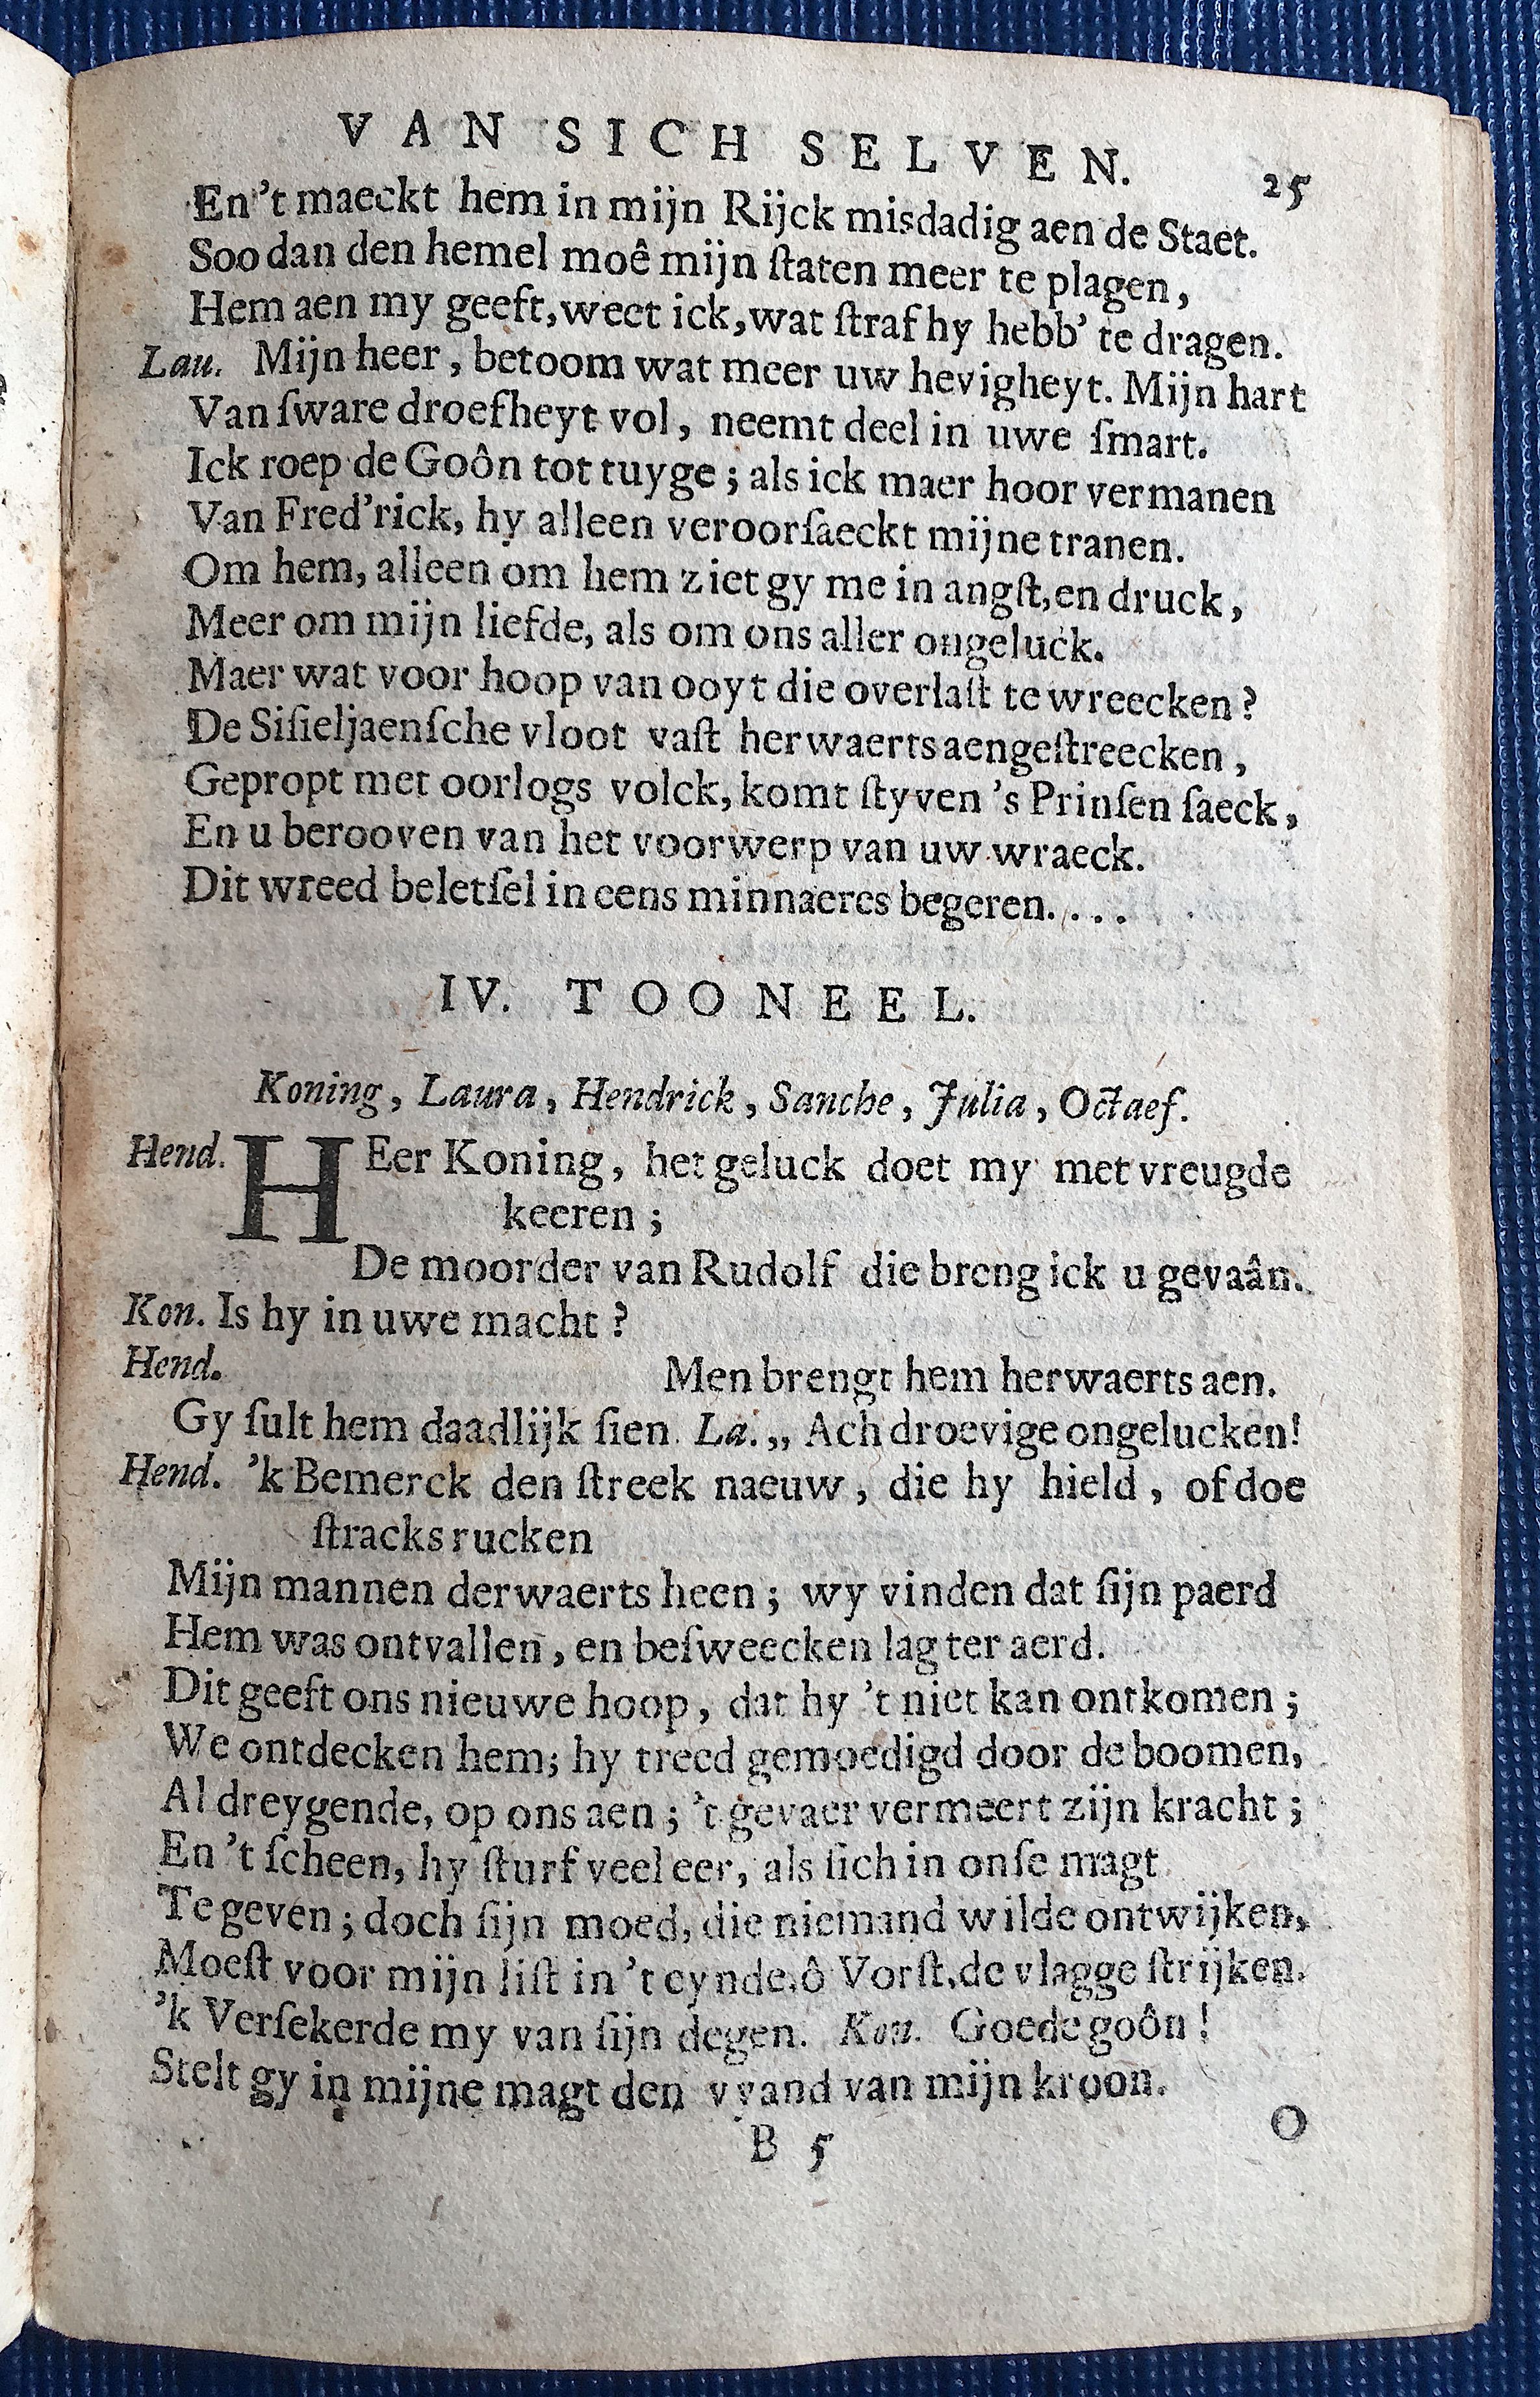 VAN SICH SELVEN. 25
En 't maeckt hem in mijn Rijck misdadig aen de Staet.
Soo dan den hemel moê mijn ſtaten meer te plagen,
Hem aen my geeft, weet ick, wat ſtraf hy hebb' te dragen.
Lau. Mijn heer, betoom wat meer uw hevigheyt. Mijn hart
Van ſware droefheyt vol, neemt deel in uwe ſmart.
Ick roep de Goôn tot tuyge; als ick maer hoor vermanen
Van Fred'rick, hy alleen veroorſaeckt mijne tranen.
Om hem, alleen om hem ziet gy me in angſt, en druck,
Meer om mijn liefde, als om ons aller ongeluck.
Maer wat voor hoop van ooyt die overlaſt te wreecken?
De Siſieljaenſche vloot vaſt herwaerts aengeſtreecken,
Gepropt met oorlogs volck, komt ſtyven 's Prinſen ſaeck,
En u berooven van het voorwerp van uw wraeck.
Dit wreed beletſel in eens minnaeres begeren....
IV. TOONEEL.
Koning, Laura, Hendrick, Sanche, Julia, Octaef.
Hend. HEer Koning, het geluck doet my met vreugde
keeren;
De moorder van Rudolf die breng ick u gevaân.
Kon. Is hy in uwe macht?
Hend. Men brengt hem herwaerts aen.
Gy ſult hem daadlijk ſien. La. „ Ach droevige ongelucken!
Hend. 'k Bemerck den ſtreek naeuw, die hy hield, of doe
ſtracks rucken
Mijn mannen derwaerts heen; wy vinden dat ſijn paerd
Hem was ontvallen, en beſweecken lag ter aerd.
Dit geeft ons nieuwe hoop, dat hy 't niet kan ontkomen;
We ontdecken hem; hy treed gemoedigd door de boomen,
Al dreygende, op ons aen; 't gevaer vermeert zijn kracht;
En 't ſcheen, hy ſturf veel eer, als ſich in onſe magt
Te geven; doch ſijn moed, die niemand wilde ontwijken,
Moeſt voor mijn liſt in 't eynde, ô Vorſt, de vlagge ſtrijken.
'k Verſekerde my van ſijn degen. Kon. Goede goôn!
Stelt gy in mijne magt den vyand van mijn kroon.
B 5 O